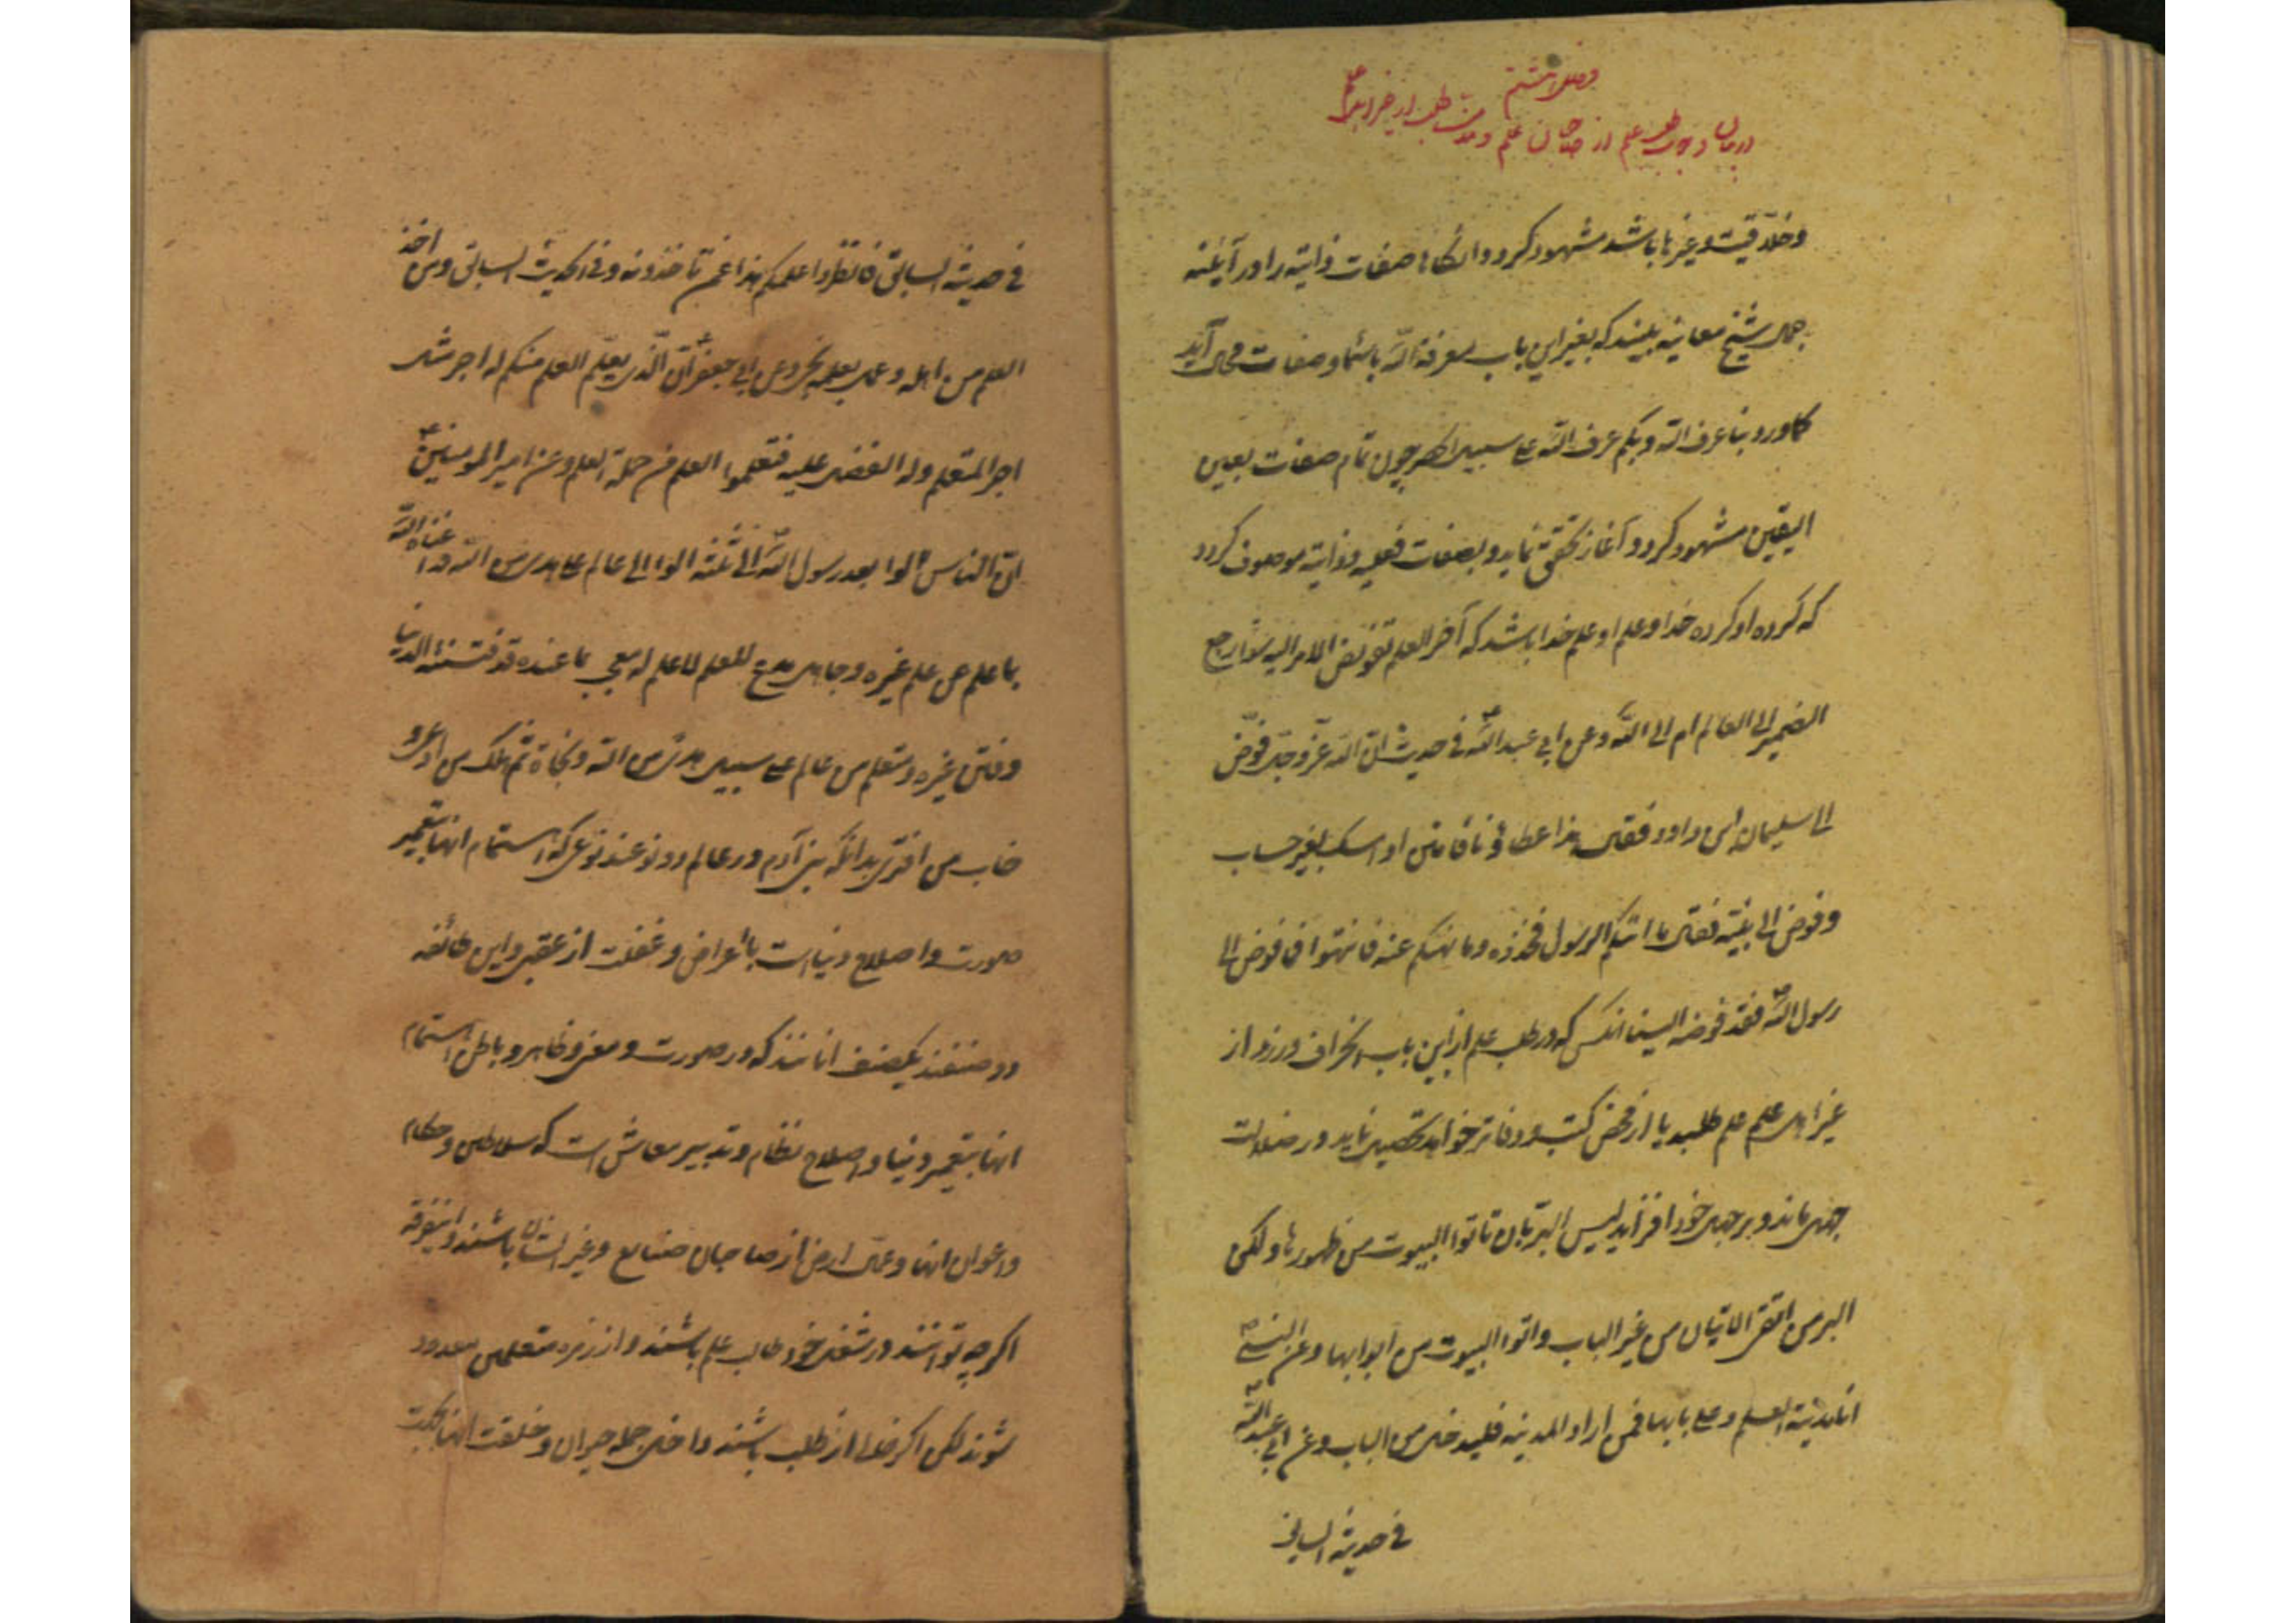 فصل هشتم
در بیان وجوب طلب علم از صاحبان علم و مذمت طلب از غیر اهل آن
و خلاقیت و غیرها باشد مشهود کردد و انکاه صفات ذاتیه را در آیئنه
جمال شیخ معاینه بیند که بغیر این باب معرفة الله باسماء و صفات محال آید
کما ورد بنا عرف الله و بکم عرف الله علی سبیل الحصر چون تمام صفات بعین
الیقین مشهود کردد و آغاز تحقق نماید و بصفات فعلیه و ذاتیه موصوف کردد
که کرده او کرده خدا و علم او علم خدا باشد که آخر العلم تفویض الامر الیه سواء ارجع
الضمیر الی العالم ام الی الله و عن ابی عبد الله ع فی حدیث ان الله عز و جل فوض
الی سلیمان ابن داود فقال هذا عطاؤنا فامنن او امسک بغیر حساب
و فوض الی نبیه فقال ما اتیکم الرسول فخذوه و ما نهیکم عنه فانتهوا فما فوض الی
رسول الله ص فقد فوضه الینا انکس که در طلب علم از این باب انحراف ورزد و از
غیر اهل علم علم طلبد یا از محض کتب و دفاتر خواهد تحصیل نماید در ضلالت
جهل ماند و بر جهل خود افزاید لیس البر بان تاتوا البیوت من ظهورها و لکن
البر من اتقی الاتیان من غیر الباب و اتوا البیوت من ابوابها و عن النبی ص
انا مدینة العلم و علی بابها فمن اراد المدینه فلیدخل من الباب و عن ابی عبد الله ع
فی حدیثه السابق
فی حدیثه السابق فانظروا علمکم هذا عمن تاخذونه و فی الحدیث السابق و من اخذ
العلم من اهله و عمل بعلمه نجی و عن ابی جعفر ع ان الذی یعلم العلم منکم له اجر مثل
اجر المتعلم و له الفضل علیه فتعلموا العلم من حملة العلم و عن امیر المومنین ع
ان الناس آلوا بعد رسول الله ص الی ثلثه الوا الی عالم علی هدی من الله قد اغناه الله
بما علم من علم غیره و جاهل مدع للعلم لا علم له معجب بما عنده قد فتنته الدنیا
و فتن غیره و متعلم من عالم علی سبیل هدی من الله و نجاة ثم هلک من ادعی و
خاب من افتری بدانکه بنی آدم در عالم دو نوعند نوعی که اهتمام انها بتعمیر
صورت و اصلاح دنیا است باعراض و غفلت از عقبی و این طائفه
دو صنفند یکصنف انانند که در صورت و معنی و ظاهر و باطن اهتمام
انها بتعمیر دنیا و اصلاح نظام و تدبیر معاش است که سلاطین و حکام
و اعوان انها و عمال ارض از صاحبان صنایع و غیر ایشان باشند و اینفرقه
اکرچه توانند در شغل خود طالب علم باشند و از زمره متعلمین معدود
شوند لکن اکر خالی از طلب باشند داخل جمله حیوان و خلقت انها بجهت